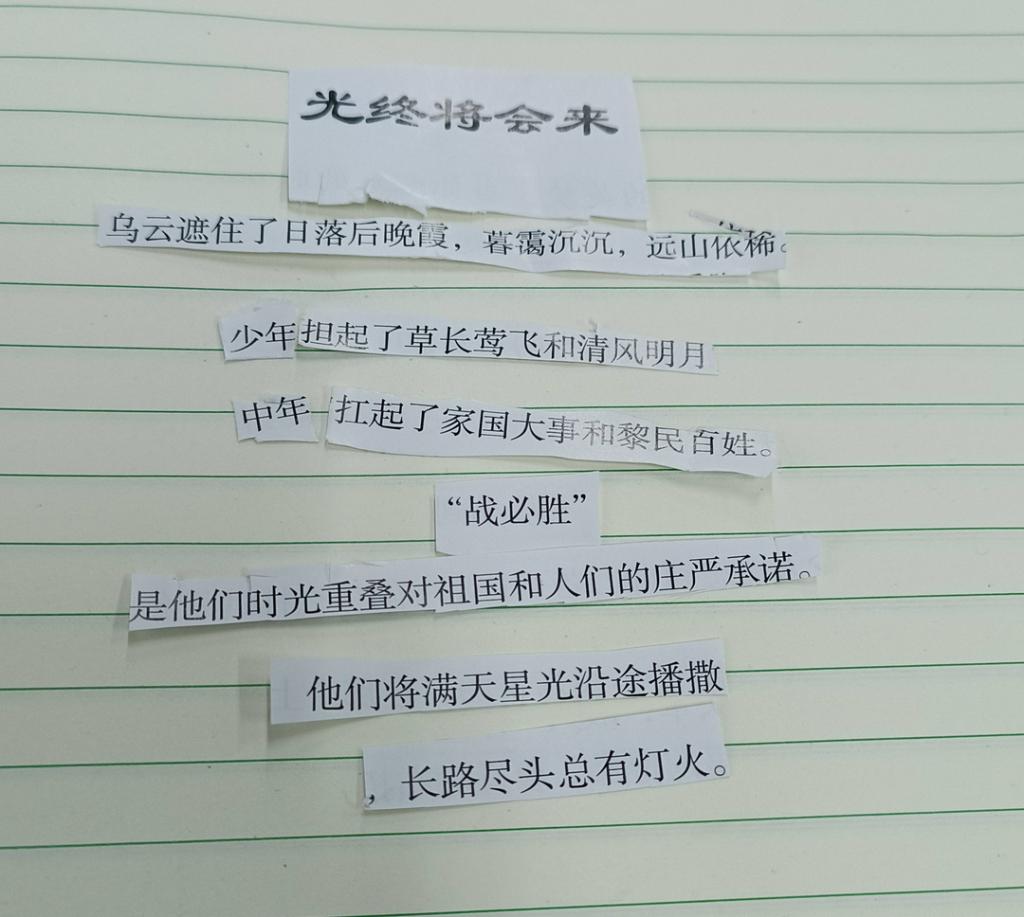 光终将会来
乌云遮住了日落后晚霞，暮霭沉沉，远山依稀。
少年担起了草长莺飞和清风明月
中年扛起了家国大事和黎民百姓。
“战必胜”
是他们时光重叠对祖国和人们的庄严承诺。
他们将满天星光沿途播撒
，长路尽头总有灯火。